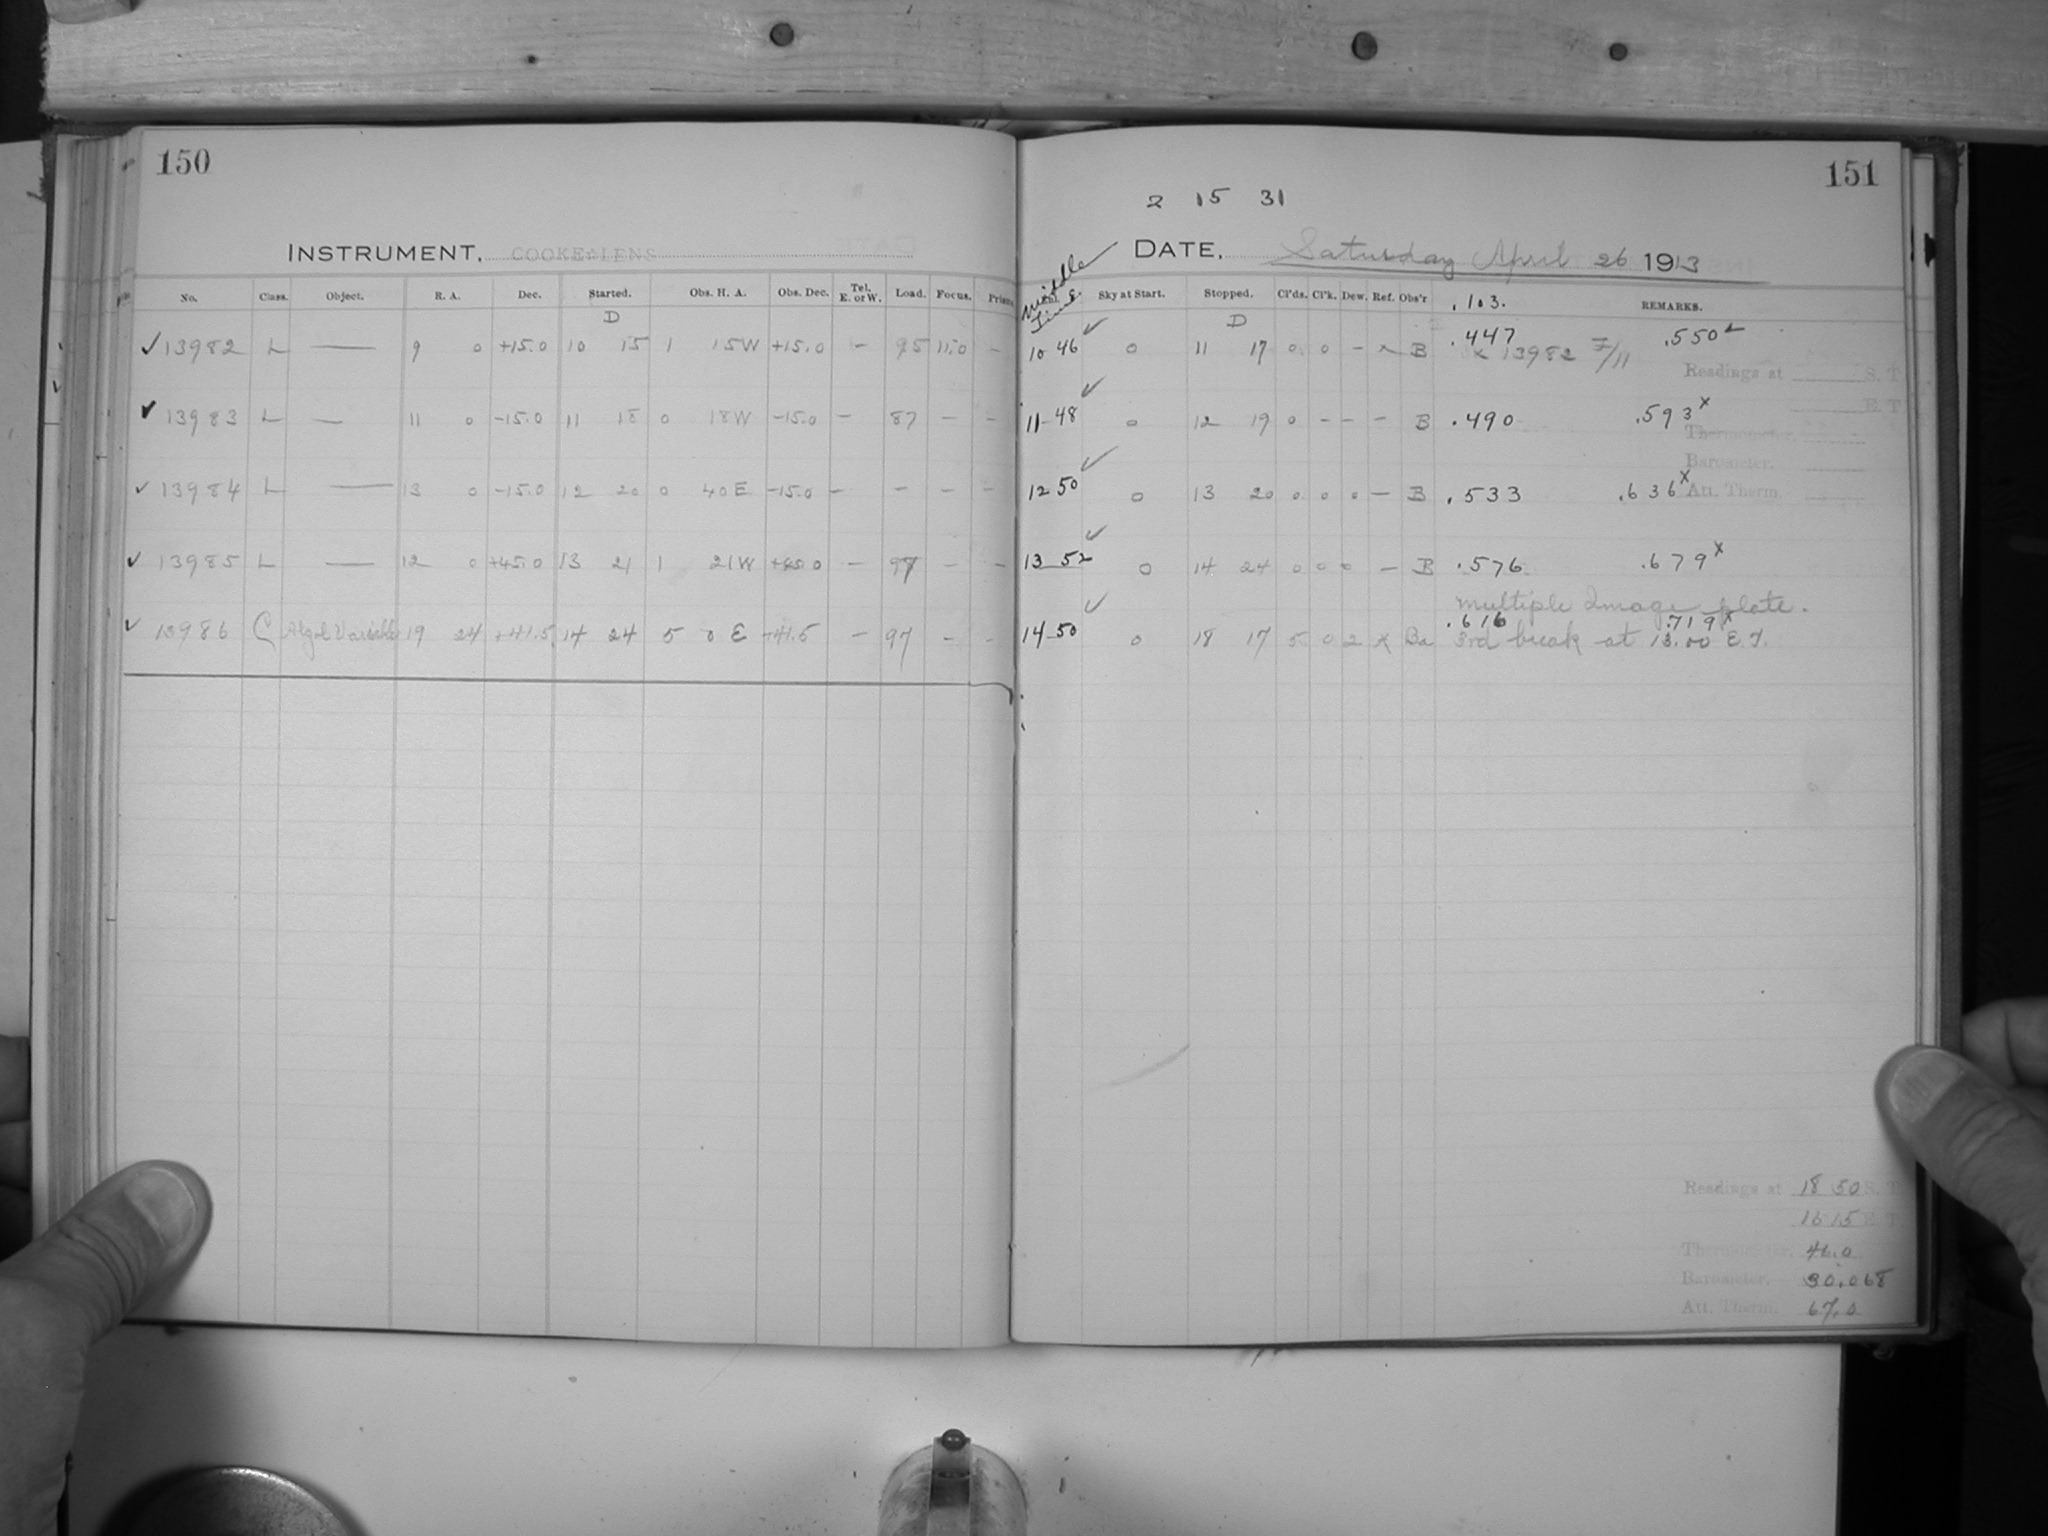 150
INSTRUMENT, COOKE LENS
No. Class. Object. R. A. Dec. Started. Obs. H. A. Obs. Dec. Tel. E. or W. Load. Focus. Prism
D
13982 L — 9 0 +15.0 10 15 1 15W +15.0 — 95 11.0 —
13983 L — 11 0 -15.0 11 18 0 18W -15.0 — 87 — —
13984 L — 13 0 -15.0 12 20 0 40E -15.0 — — — —
13985 L — 12 0 +45.0 13 21 1 21W +45.0 — 97 — —
13986 C Algol Variable 19 24 +41.5 14 24 5 0 E +41.5 — 97 — —
151
2 15 31
DATE, Saturday April 26 1913
Middle Time
Sky at Start. Stopped. Cl'ds. Cl'k. Dew. Ref. Obs'r .103. REMARKS.
D
10 46 0 11 17 0 0 — x B .447 .550
x 13982 F/11
Readings at S. T.
E. T.
11-48 0 12 19 0 — — — B .490 .593x
Thermometer.
Barometer.
12 50 0 13 20 0 0 0 — B .533 .636x
Att. Therm.
13 52 0 14 24 0 0 0 — B .576 .679x
multiple Image plate.
.616 .719x
14-50 0 18 17 5 0 2 x Ba 3rd break at 13.00 E.T.
Readings at 18 50 S. T.
16 15 E. T.
Thermometer. 46.0
Barometer. 30.068
Att. Therm. 67.0